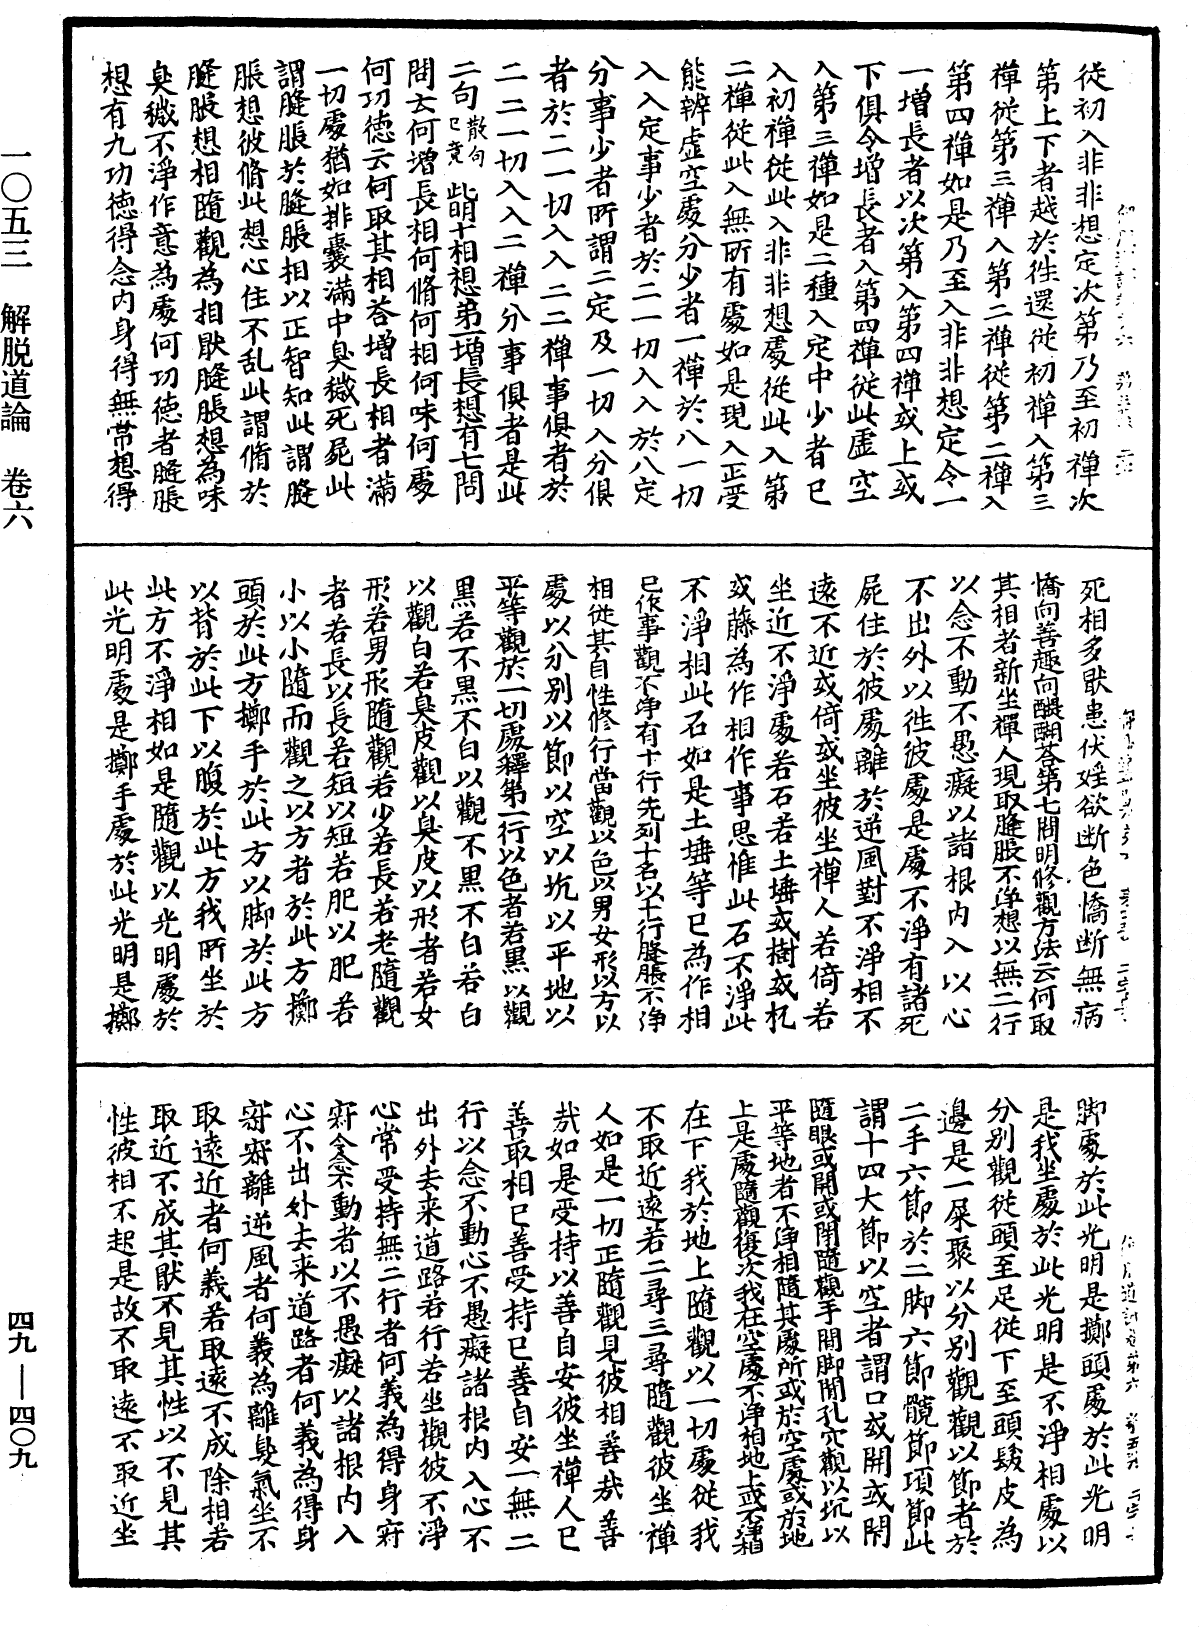 一〇五三　解脱道論　卷六
四九—四〇九
從初入非非想定次第乃至初禪次
第上下者越於徃還從初禪入第三
禪從第三禪入第二禪從第二禪入
第四禪如是乃至入非非想定令一
一增長者以次第入第四禪或上或
下俱令增長者入第四禪從此虛空
入第三禪如是二種入定中少者已
入初禪從此入非非想處從此入第
二禪從此入無所有處如是現入正受
能辨虛空處分少者一禪於八一切
入入定事少者於二一切入入於八定
分事少者所謂二定及一切入分俱
者於二一切入入二二禪事俱者於
二二一切入入二禪分事俱者是此
二句散句已竟　此明十相想第一增長想有七問
問云何增長相何脩何相何味何處
何功德云何取其相荅增長相者滿
一切處猶如排囊滿中臭穢死屍此
謂膖脹於膖脹相以正智知此謂膖
脹想彼脩此想心住不乱此謂脩於
膖脹想相隨觀為相猒膖脹想為味
臭穢不淨作意為處何功徳者膖脹
想有九功徳得念內身得無常想得
死相多猒患伏婬欲断色憍断無病
憍向善趣向醍醐荅第七問明修觀方法云何取
其相者新坐禪人現取膖脹不淨想以無二行
以念不動不愚癡以諸根內入以心
不出外以徃彼處是處不淨有諸死
屍住於彼處離於逆風對不淨相不
遠不近或倚或坐彼坐禪人若倚若
坐近不淨處若石若土埵或樹或杌
或藤為作相作事思惟此石不淨此
不淨相此石如是土埵等已為作相
已作事觀不淨有十行先列十名以十行膖脹不淨
相從其自性修行當觀以色以男女形以方以
處以分別以節以空以坑以平地以
平等觀於一切處釋第一行以色者若黑以觀
黑若不黑不白以觀不黑不白若白
以觀白若臭皮觀以臭皮以形者若女
形若男形隨觀若少若長若老隨觀
者若長以長若短以短若肥以肥若
小以小隨而觀之以方者於此方擲
頭於此方擲手於此方以脚於此方
以背於此下以腹於此方我所坐於
此方不淨相如是隨觀以光明處於
此光明處是擲手處於此光明是擲
脚處於此光明是擲頭處於此光明
是我坐處於此光明是不淨相處以
分別觀從頭至足從下至頭髮皮為
邊是一屎聚以分別觀觀以節者於
二手六節於二脚六節髖節項節此
謂十四大節以空者謂口或開或閇
隨眼或開或閇隨觀手間脚間孔穴觀以坑以
平等地者不淨相隨其處所或於空處或於地
上是處隨觀復次我在空處不淨相地上或不淨相
在下我於地上隨觀以一切處從我
不取近遠若二尋三尋隨觀彼坐禪
人如是一切正隨觀見彼相善㢤善
㢤如是受持以善自安彼坐禪人已
善取相已善受持已善自安一無二
行以念不動心不愚癡諸根內入心不
出外去来道路若行若坐觀彼不淨
心常受持無二行者何義為得身𡨋
𡨋念不動者以不愚癡以諸根內入
心不出外去来道路者何義為得身
𡨋𡨋離逆風者何義為離臭氣坐不
取遠近者何義若取遠不成除相若
取近不成其猒不見其性以不見其
性彼相不起是故不取遠不取近坐